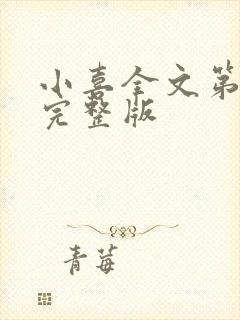 小喜全文第
完整版
青莓